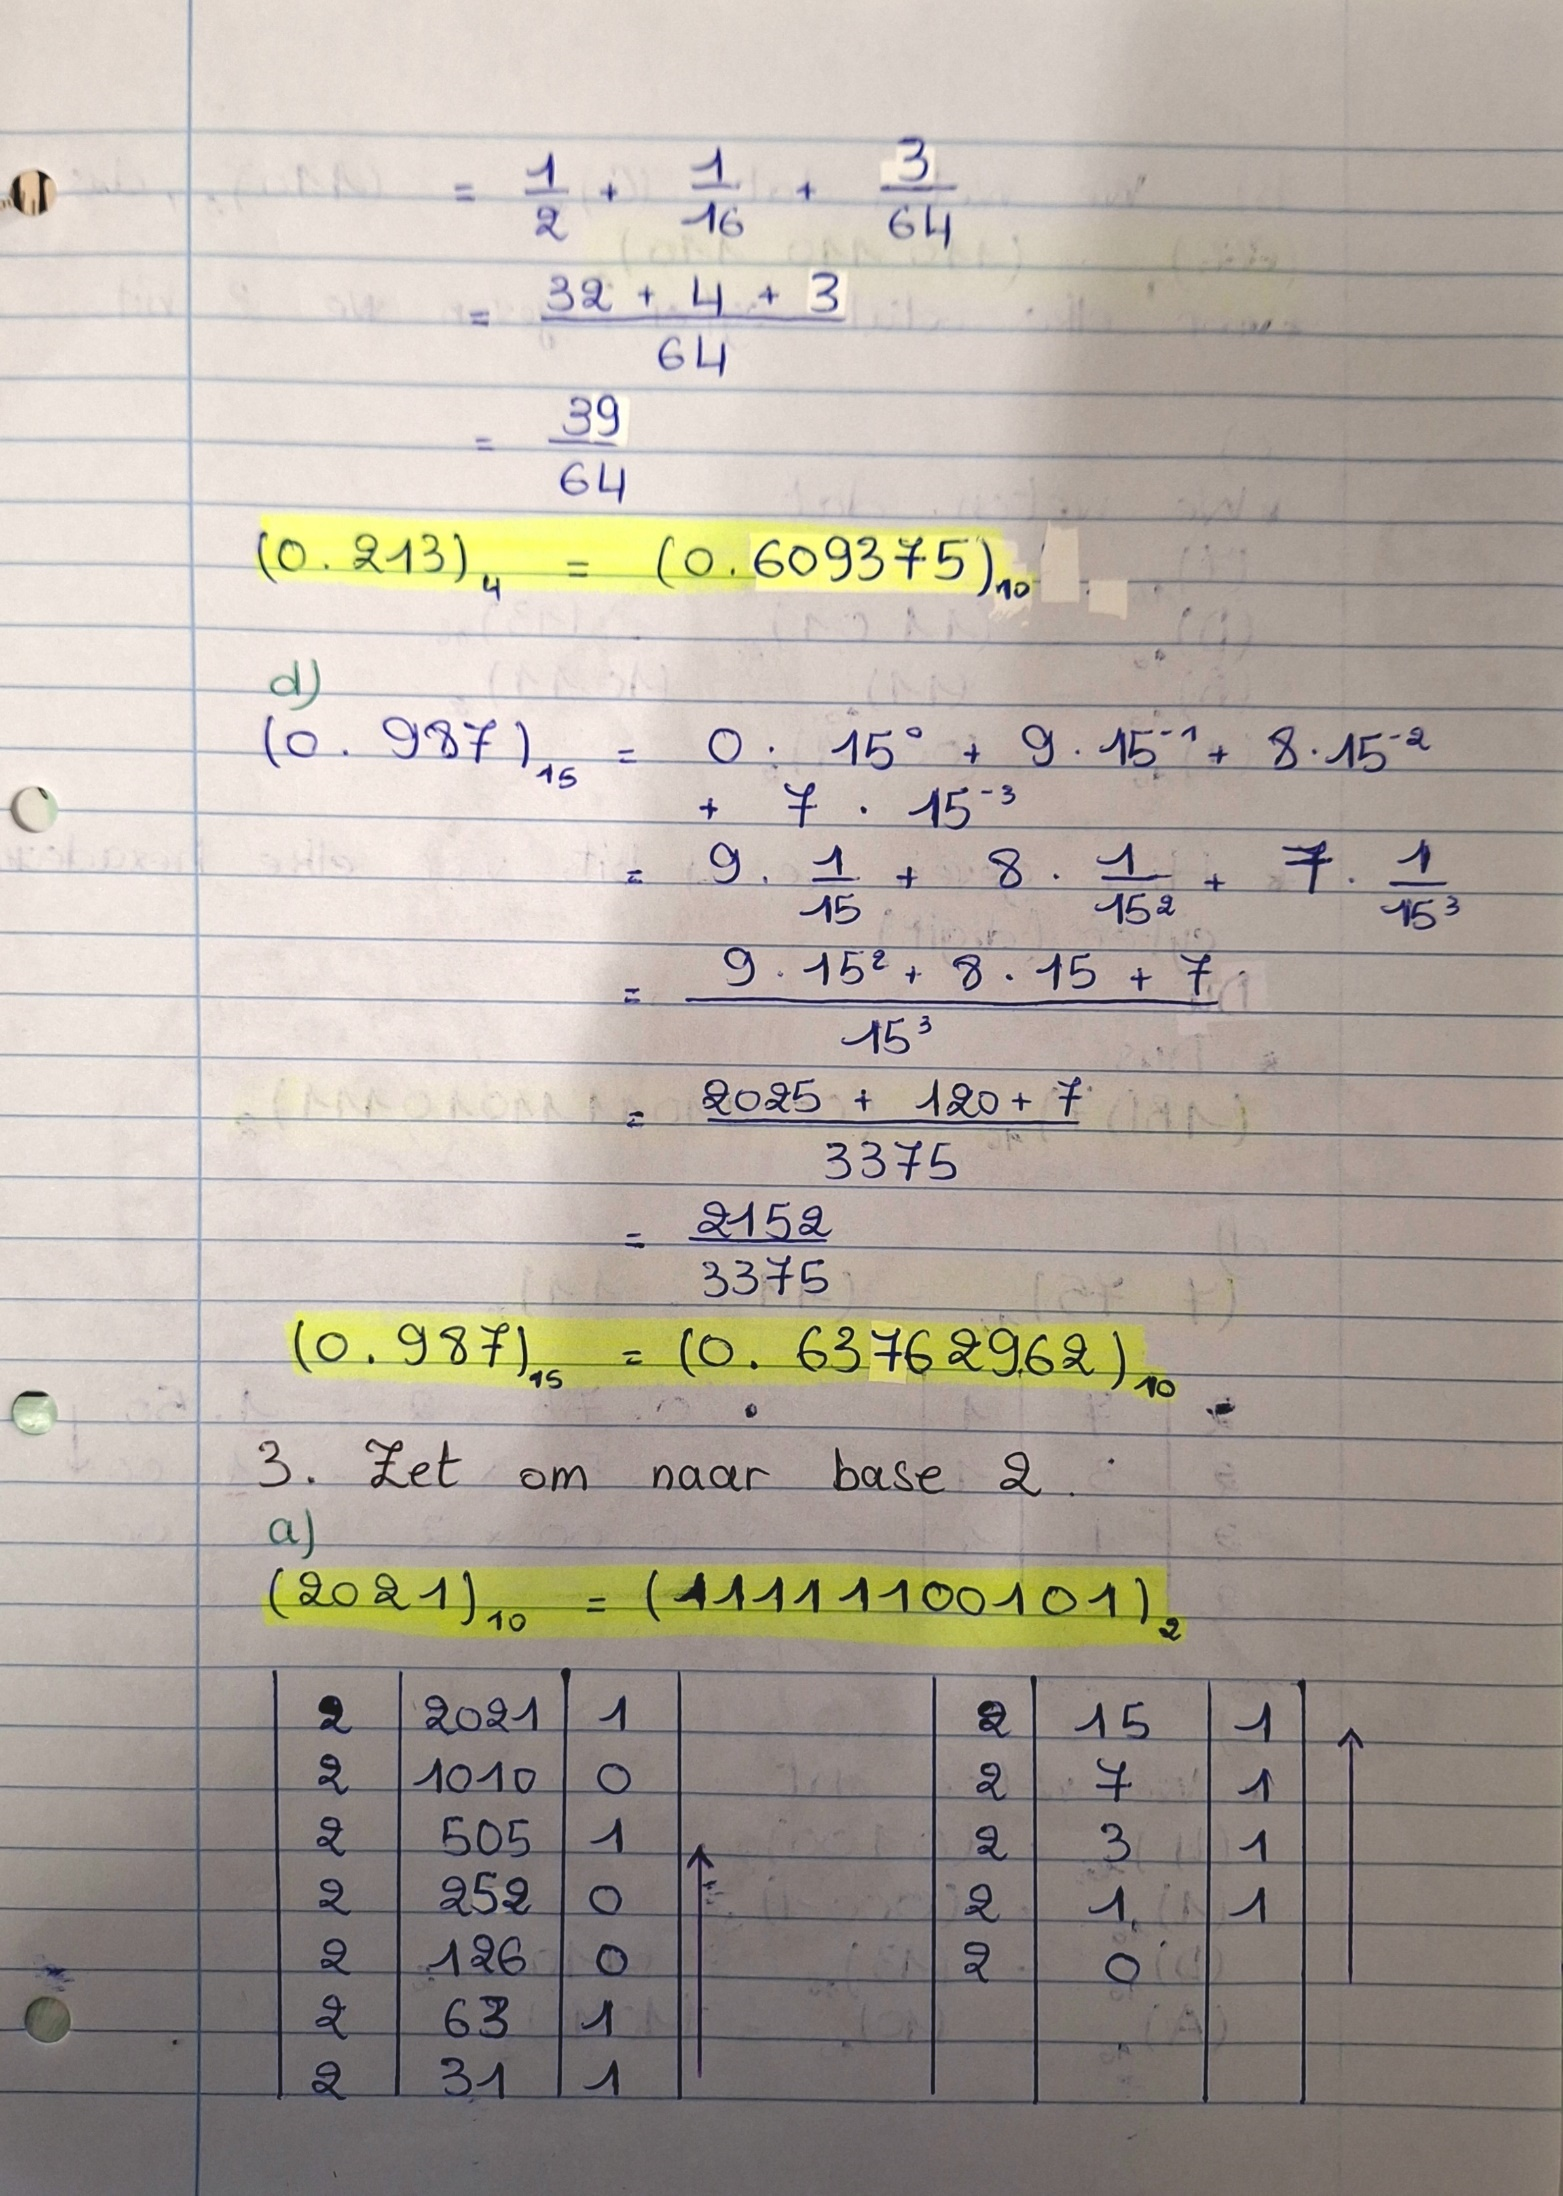 = 1/2 + 1/16 + 3/64
= (32 + 4 + 3)/64
= 39/64
(0.213)₄ = (0.609375)₁₀
d)
(0.987)₁₅ = 0 · 15⁰ + 9 · 15⁻¹ + 8 · 15⁻²
+ 7 · 15⁻³
= 9 · 1/15 + 8 · 1/15² + 7 · 1/15³
= (9 · 15² + 8 · 15 + 7)/15³
= (2025 + 120 + 7)/3375
= 2152/3375
(0.987)₁₅ = (0.63762962)₁₀
3. Zet om naar base 2.
a)
(2021)₁₀ = (11111100101)₂
2 | 2021 | 1
2 | 1010 | 0
2 | 505 | 1
2 | 252 | 0
2 | 126 | 0
2 | 63 | 1
2 | 31 | 1
2 | 15 | 1
2 | 7 | 1
2 | 3 | 1
2 | 1 | 1
2 | 0